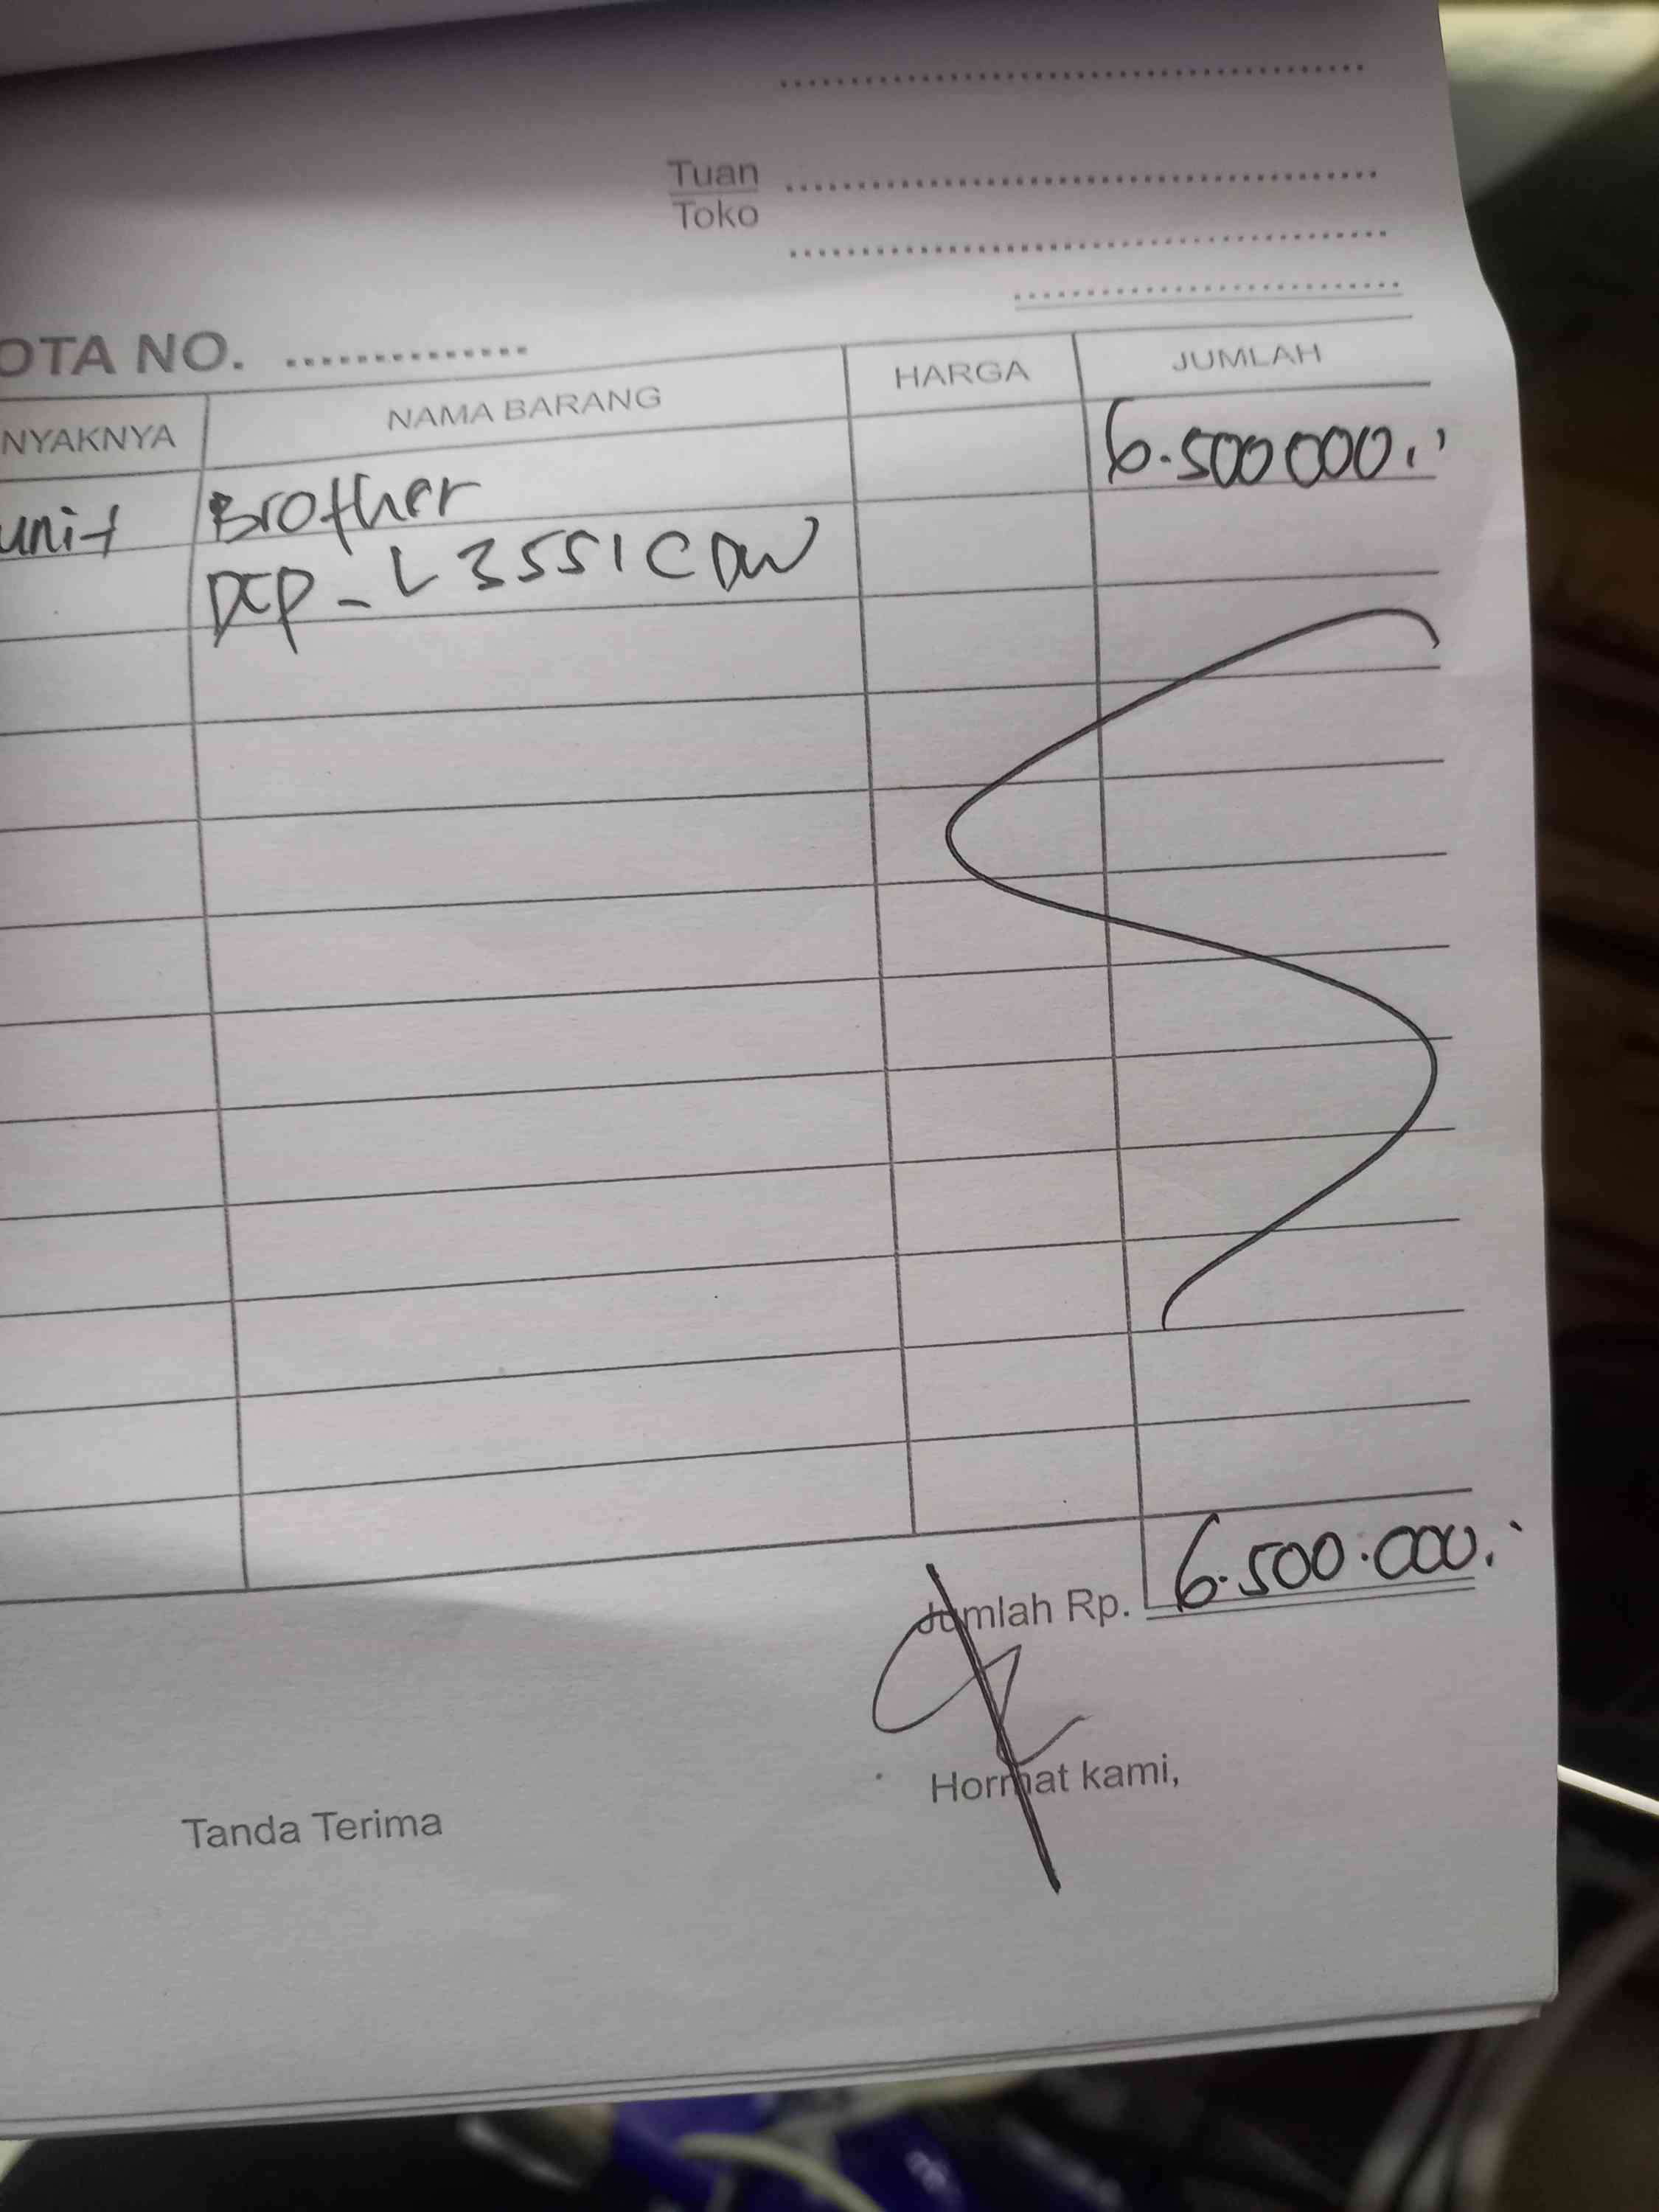 Tuan
Toko
OTA NO. ..............
NYAKNYA NAMA BARANG HARGA JUMLAH
unit Brother 6.500000.,
DCP-L3551CDW
Jumlah Rp. 6.500.000.
Hormat kami,
Tanda Terima